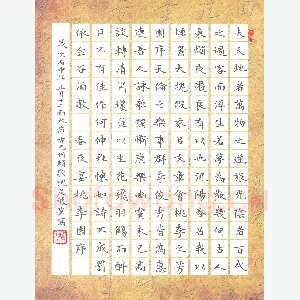 夫天地者萬物之逆旅光陰者百代
之過客而浮生若夢為歡幾何古人
秉燭夜遊良有以也況陽春召我以
煙景大塊假我以文章會桃李之芳
園序天倫之樂事群季俊秀皆為惠
連吾人詠歌獨慚康樂幽賞未已高
談轉清開瓊筵以坐花飛羽觴而醉
月不有佳作何伸雅懷如詩不成罰
依金谷酒數 春夜宴桃李園序
正月十二